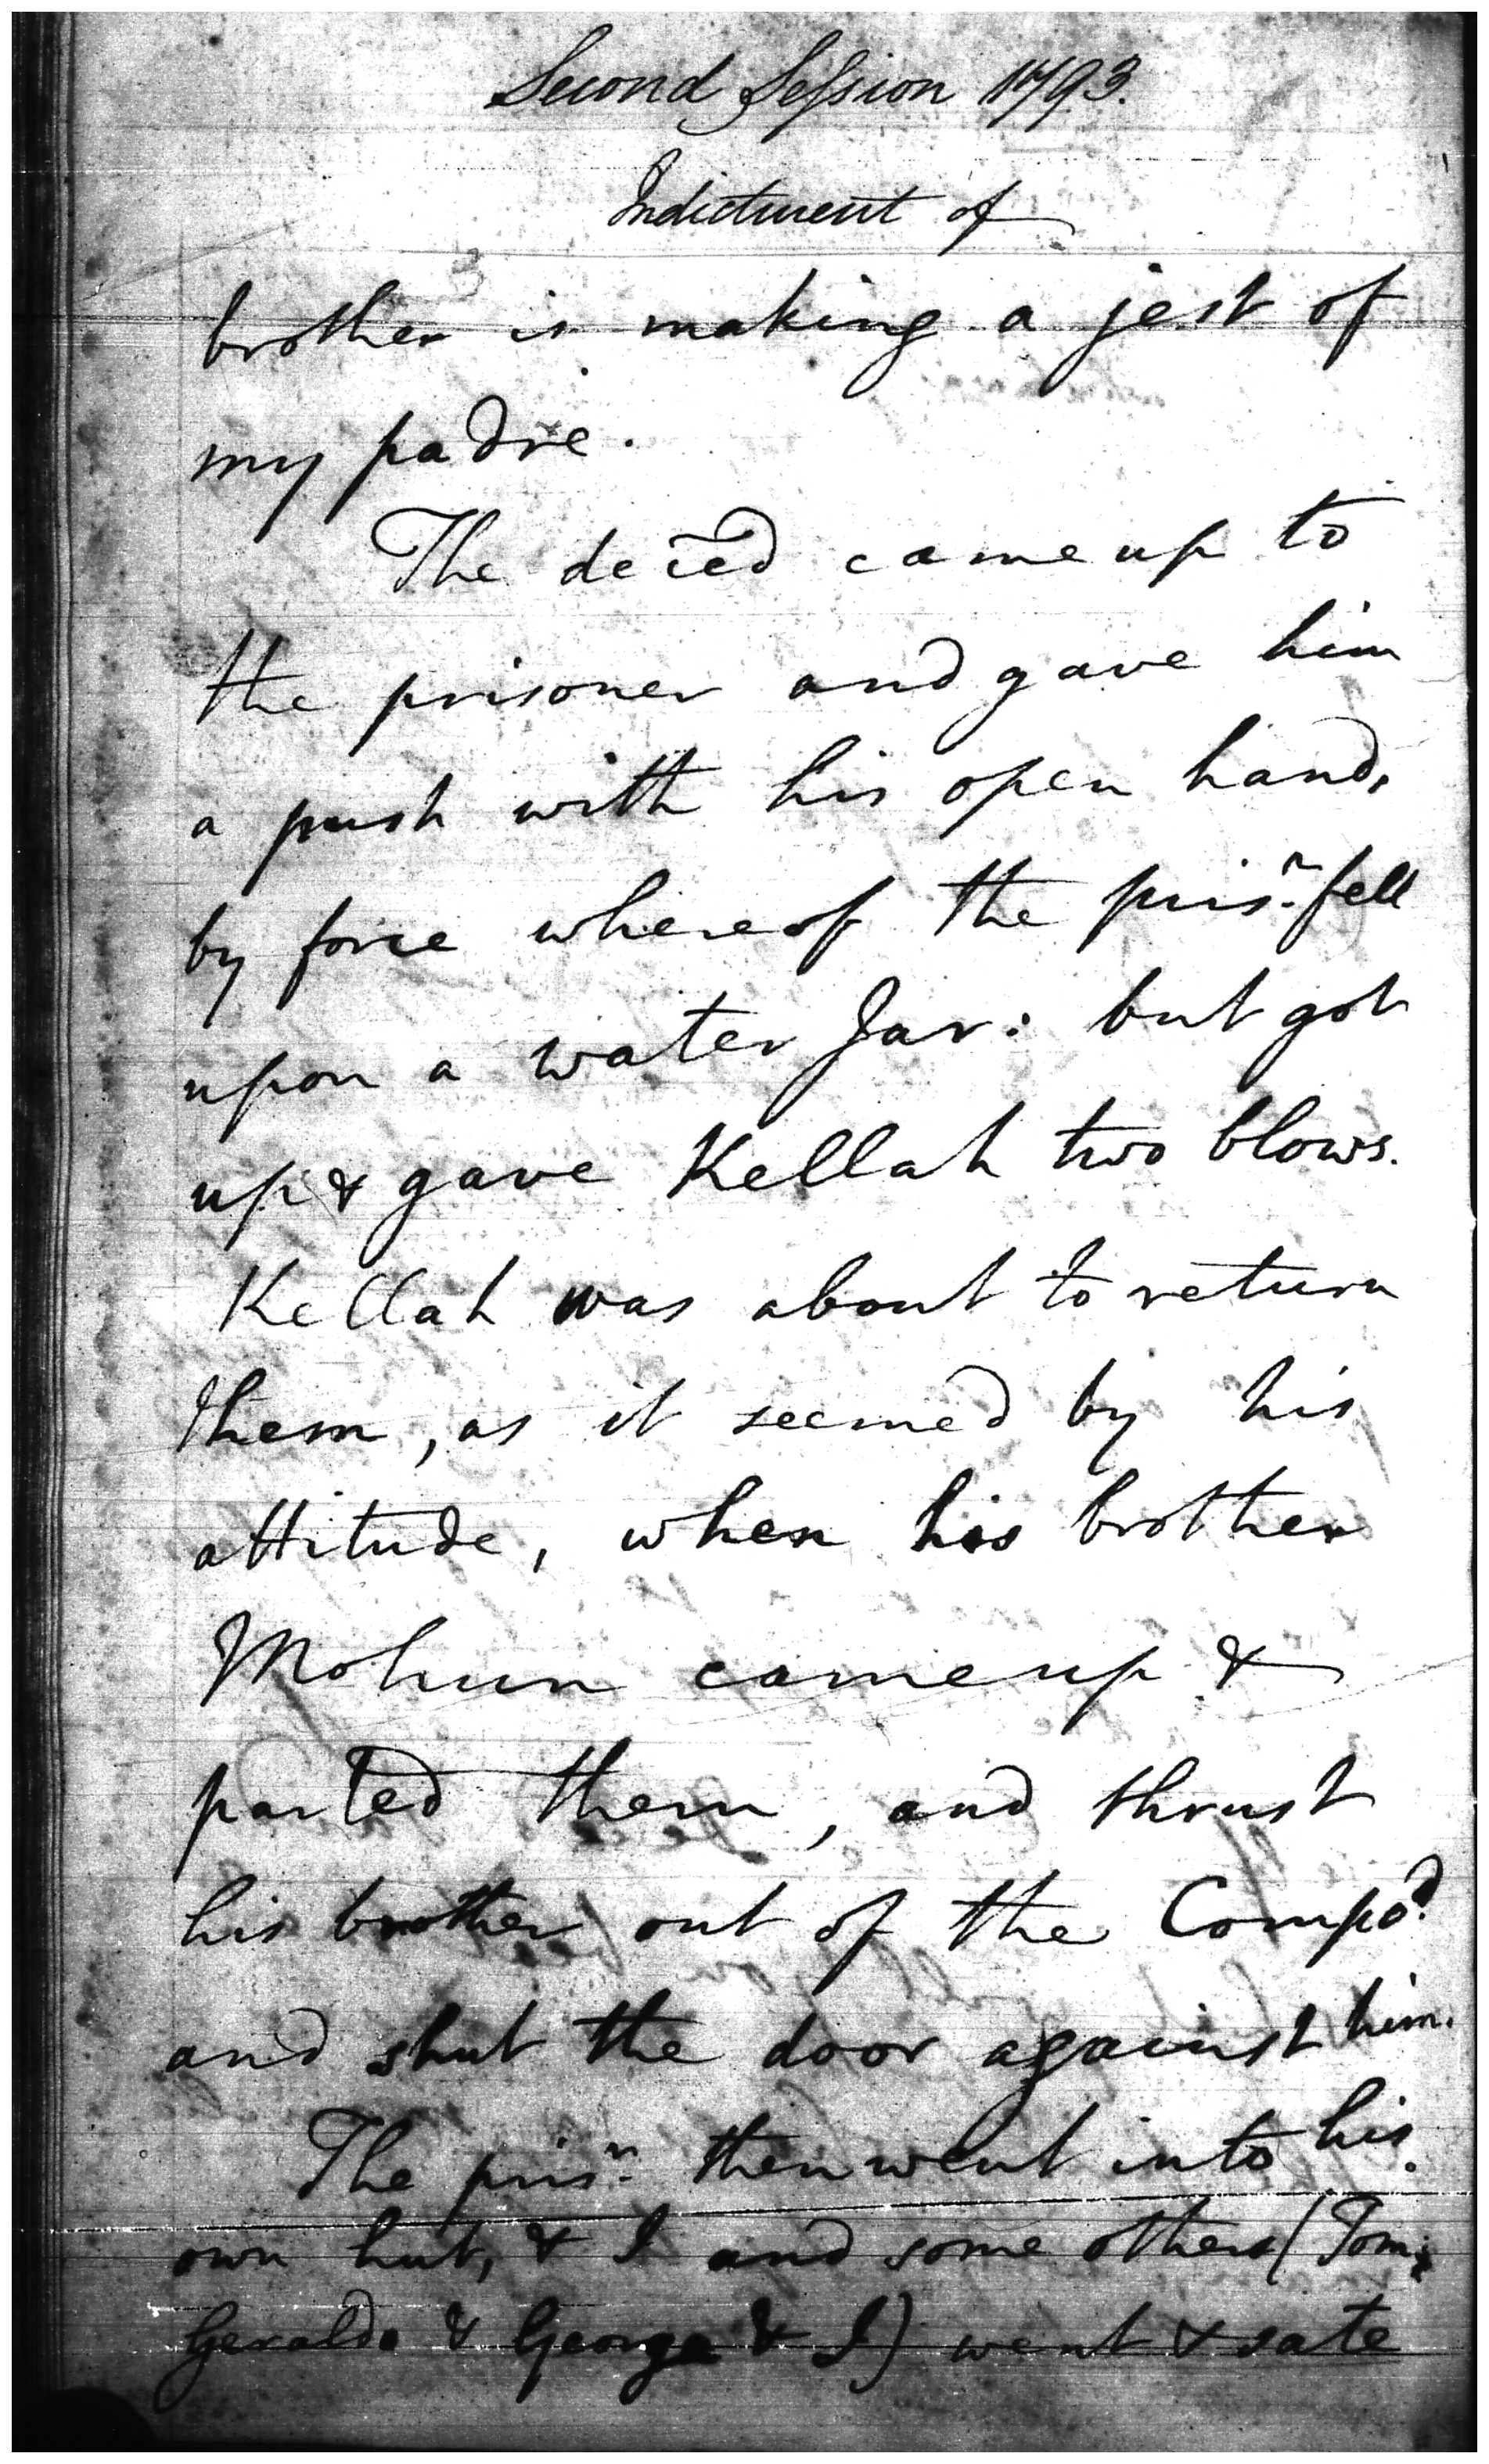 Second Session 1793.
Indictment of
brother is making a jest of
my padre.
The deced came up to
the prisoner and gave him
a push with his open hand,
by force whereof the prisr. fell
upon a water Jar: but got
up & gave Kellah two blows.
Kellah was about to return
them, as it seemed by his
attitude, when his brother
Mohun came up &
parted them, and thrust
his brother out of the Compd.
and shut the door against him.
The prisr. then went into his
own hut, & I and some others (Tom;
Geraldo & George & I) went & sate